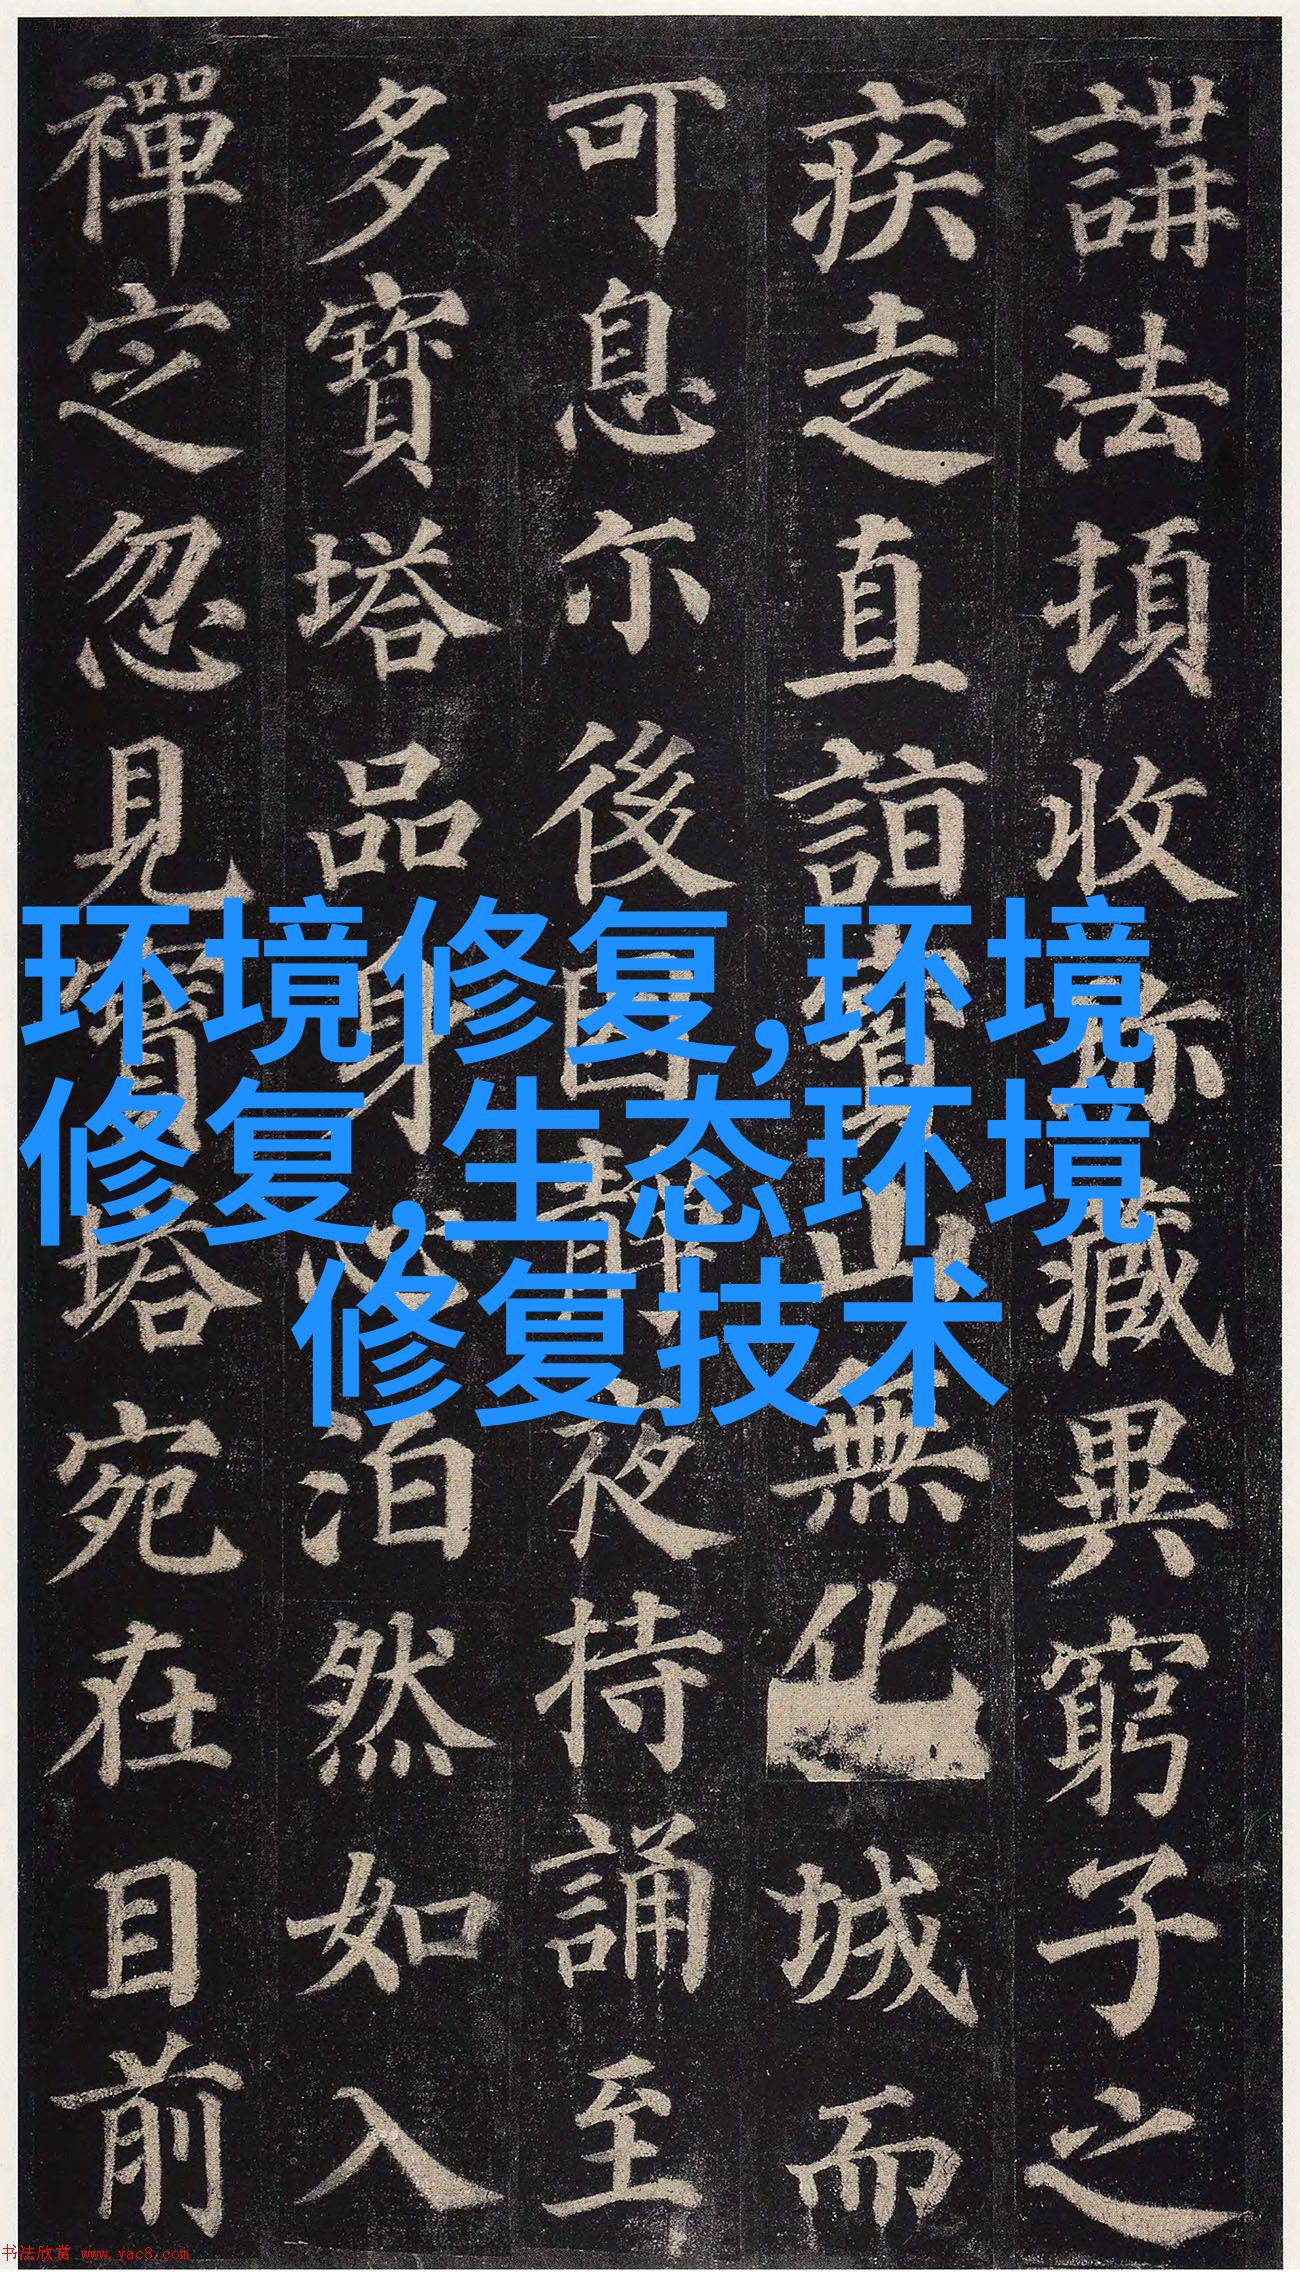 講法頓收珎藏異窮子之
疾走直詣寶山無化城而
可息尒後因靜夜持誦至
多寶塔品身心泊然如入
禪定忽見寶塔宛在目前
环境修复,环境
修复,生态环境
修复技术
书法欣赏 www.yac8.com